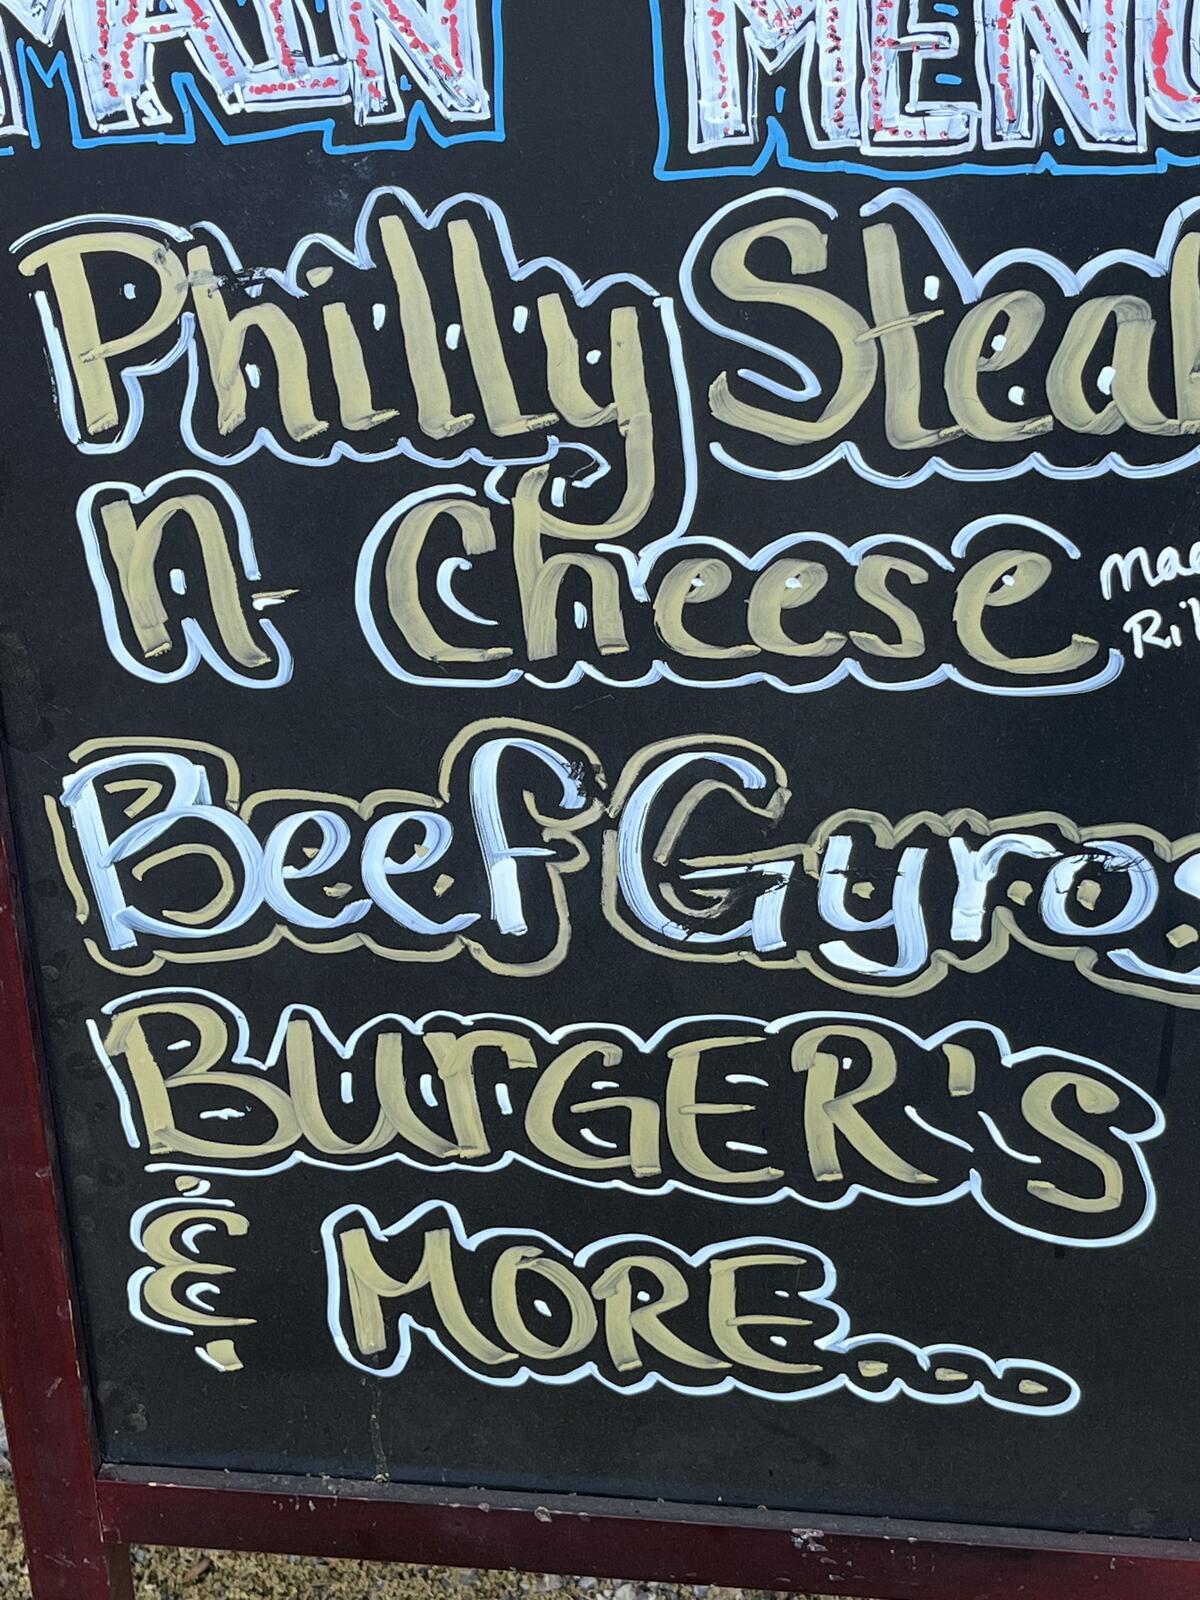 MAIN MENU
Philly Steak
N Cheese
Beef Gyros
BURGER'S
& MORE...